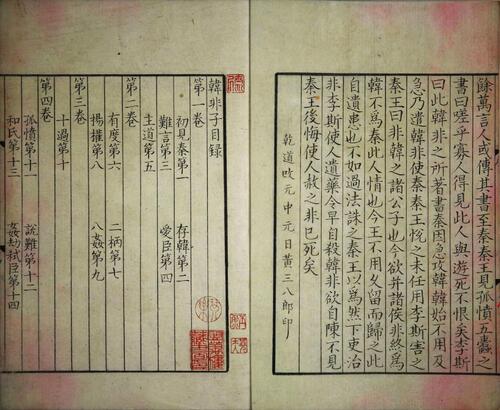 餘萬言人或傳其書至秦秦王見孤憤五蠹之
書曰嗟乎寡人得見此人與游死不恨矣李斯
曰此韓非之所著書秦因急攻韓韓始不用及
急乃遣韓非使秦秦王悅之未任用李斯害之
秦王曰非韓之諸公子也今欲并諸侯非終爲
韓不爲秦此人情也今王不用久留而歸之此
自遺患也不如過法誅之秦王以爲然下吏治
非李斯使人遺藥令早自殺韓非欲自陳不見
秦王後悔使人赦之非已死矣
乾道改元中元日黃三八郎印
韓非子目錄
第一卷
初見秦第一 存韓第二
難言第三 愛臣第四
主道第五
第二卷
有度第六 二柄第七
揚搉第八 八姦第九
第三卷
十過第十
第四卷
孤憤第十一 說難第十二
和氏第十三 姦劫弒臣第十四